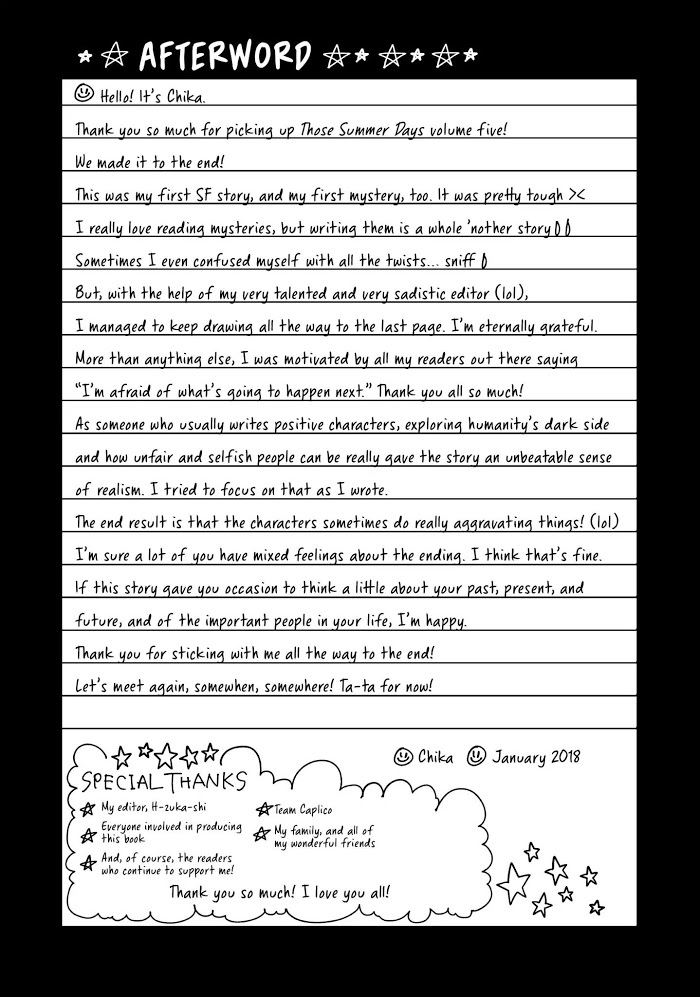 AFTERWORD
Hello! It's Chika.
Thank you so much for picking up Those Summer Days volume five!
We made it to the end!
This was my first SF story, and my first mystery, too. It was pretty tough ><
I really love reading mysteries, but writing them is a whole 'nother story
Sometimes I even confused myself with all the twists... sniff
But, with the help of my very talented and very sadistic editor (lol),
I managed to keep drawing all the way to the last page. I'm eternally grateful.
More than anything else, I was motivated by all my readers out there saying
“I'm afraid of what's going to happen next.” Thank you all so much!
As someone who usually writes positive characters, exploring humanity's dark side
and how unfair and selfish people can be really gave the story an unbeatable sense
of realism. I tried to focus on that as I wrote.
The end result is that the characters sometimes do really aggravating things! (lol)
I'm sure a lot of you have mixed feelings about the ending. I think that's fine.
If this story gave you occasion to think a little about your past, present, and
future, and of the important people in your life, I'm happy.
Thank you for sticking with me all the way to the end!
Let's meet again, somewhen, somewhere! Ta-ta for now!
Chika January 2018
SPECIAL THANKS
My editor, H-zuka-shi
Everyone involved in producing
this book
And, of course, the readers
who continue to support me!
Team Caplico
My family, and all of
my wonderful friends
Thank you so much! I love you all!